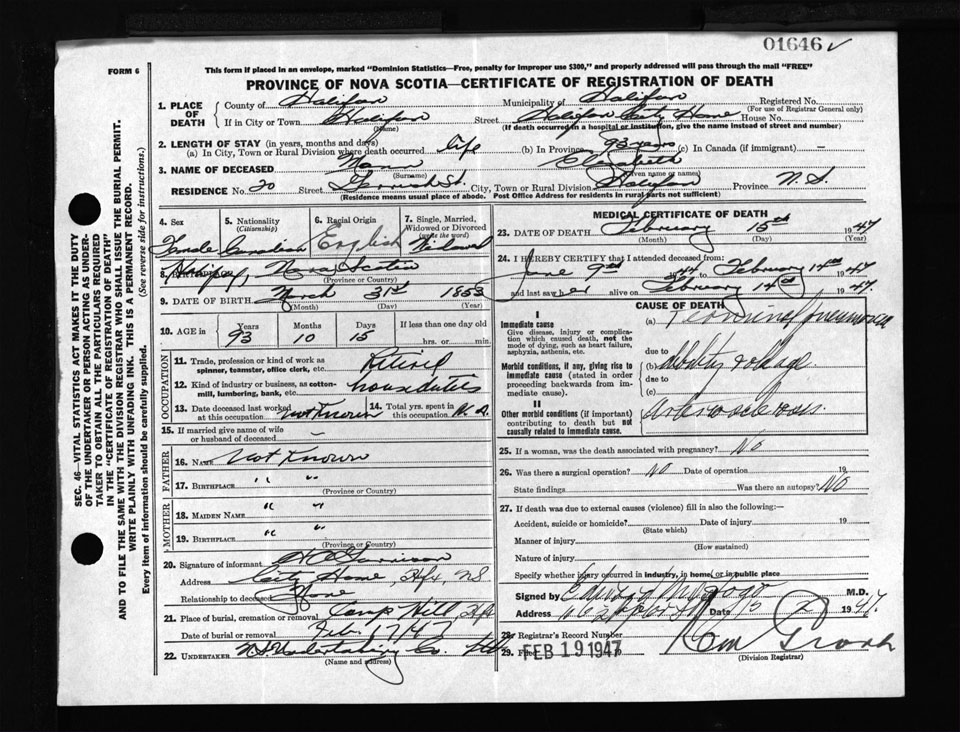 01646 ✓
FORM 6
This form if placed in an envelope, marked "Dominion Statistics—Free, penalty for improper use $300," and properly addressed will pass through the mail "FREE"
PROVINCE OF NOVA SCOTIA—CERTIFICATE OF REGISTRATION OF DEATH
SEC. 46—VITAL STATISTICS ACT MAKES IT THE DUTY
OF THE UNDERTAKER OR PERSON ACTING AS UNDER-
TAKER TO OBTAIN ALL THE PARTICULARS REQUIRED
IN THE "CERTIFICATE OF REGISTRATION OF DEATH"
AND TO FILE THE SAME WITH THE DIVISION REGISTRAR WHO SHALL ISSUE THE BURIAL PERMIT.
WRITE PLAINLY WITH UNFADING INK. THIS IS A PERMANENT RECORD.
Every item of information should be carefully supplied. (See reverse side for instructions.)
1. PLACE OF DEATH
County of Halifax Municipality of Halifax Registered No.
(For use of Registrar General only)
If in City or Town Halifax Street Halifax City Home House No.
(Name) (If death occurred in a hospital or institution, give the name instead of street and number)
2. LENGTH OF STAY (in years, months and days)
(a) In City, Town or Rural Division where death occurred life (b) In Province 93 years (c) In Canada (if immigrant) —
3. NAME OF DECEASED Elizabeth
(Surname) (Given name or names)
RESIDENCE No. 20 Street St. City, Town or Rural Division Halifax Province N.S.
(Residence means usual place of abode. Post Office Address for residents in rural parts not sufficient)
4. Sex Female
5. Nationality (Citizenship) Canadian
6. Racial Origin English
7. Single, Married, Widowed or Divorced (write the word) Widowed
8. BIRTHPLACE Nova Scotia
(Province or Country)
9. DATE OF BIRTH March 31st 1853
(Month) (Day) (Year)
10. AGE in Years 93 Months 10 Days 15 If less than one day old
hrs. or min.
OCCUPATION
11. Trade, profession or kind of work as spinner, teamster, office clerk, etc. Retired
12. Kind of industry or business, as cotton-mill, lumbering, bank, etc. house duties
13. Date deceased last worked at this occupation Not Known
14. Total yrs. spent in this occupation
15. If married give name of wife or husband of deceased —
FATHER
16. NAME Not Known
17. BIRTHPLACE " "
(Province or Country)
MOTHER
18. MAIDEN NAME " "
19. BIRTHPLACE " "
(Province or Country)
20. Signature of informant
Address City Home, Hfx, NS
Relationship to deceased None
21. Place of burial, cremation or removal Camp Hill, Hfx
Date of burial or removal Feb. 17/47
22. UNDERTAKER N.S. Undertaking Co. Hfx
(Name and address)
MEDICAL CERTIFICATE OF DEATH
23. DATE OF DEATH February 15th 1947
(Month) (Day) (Year)
24. I HEREBY CERTIFY that I attended deceased from:
June 9th 44 to February 14th 1947
and last saw her alive on February 14th 1947.
CAUSE OF DEATH
I
Immediate cause
Give disease, injury or complication which caused death, not the mode of dying, such as heart failure, asphyxia, asthenia, etc.
(a) Terminal pneumonia
due to
Morbid conditions, if any, giving rise to immediate cause (stated in order proceeding backwards from immediate cause).
(b) debility old age
due to
(c)
II
Other morbid conditions (if important) contributing to death but not causally related to immediate cause.
Arteriosclerosis.
25. If a woman, was the death associated with pregnancy? No
26. Was there a surgical operation? No Date of operation 19
State findings Was there an autopsy? No
27. If death was due to external causes (violence) fill in also the following:—
Accident, suicide or homicide? Date of injury 19
(State which)
Manner of injury
(How sustained)
Nature of injury
Specify whether injury occurred in industry, in home, or in public place
Signed by M.D.
Address Date 15 2 1947.
28. Registrar's Record Number
29. Filed FEB 19 1947
(Division Registrar)